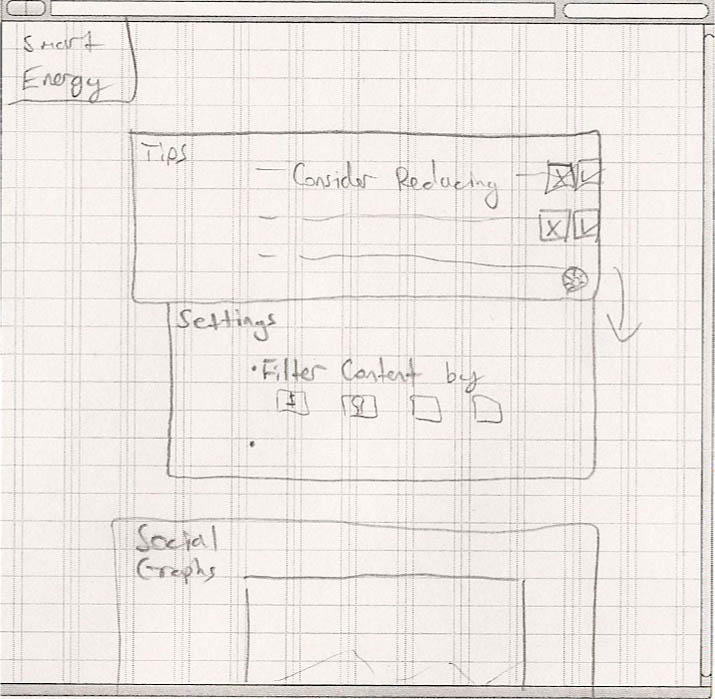 Smart
Energy
Tips
Consider Reducing
X
X
Settings
Filter Content by
$
Social
Graphs